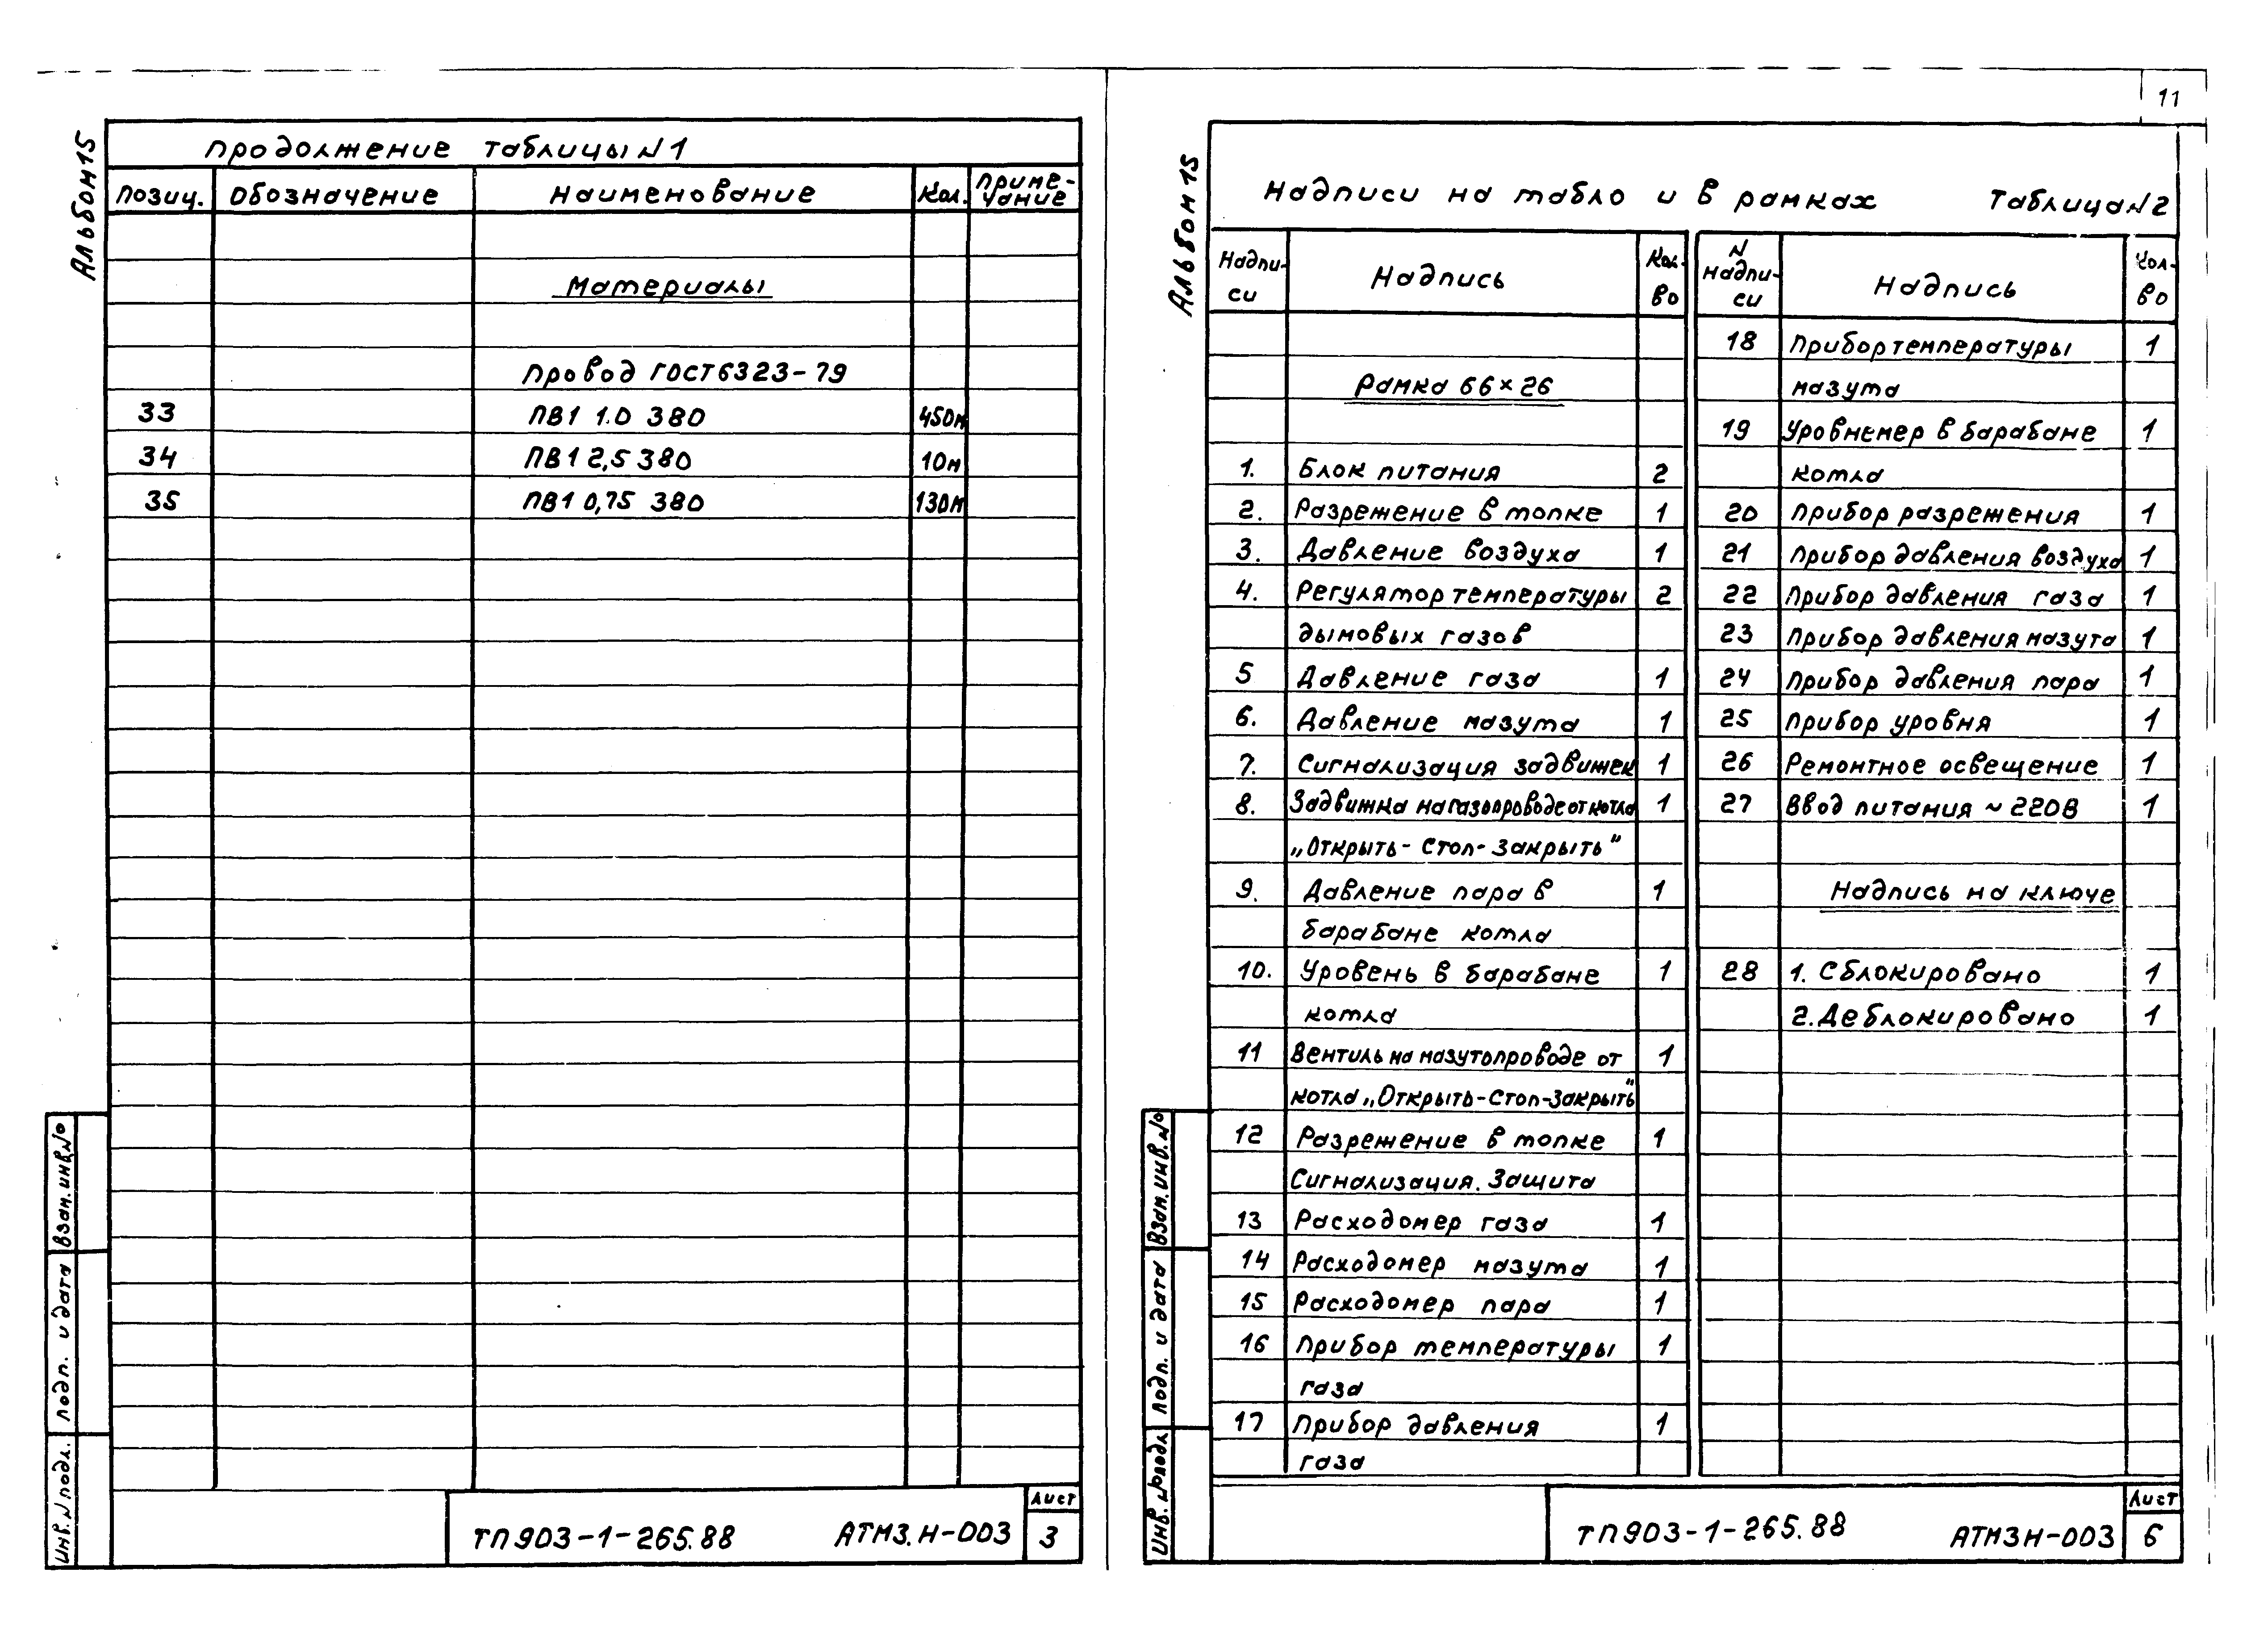 11
Альбом 15
Продолжение таблицы N 1
Позиц. Обозначение Наименование Кол. Приме-
чание
Материалы
Провод ГОСТ 6323-79
33 ПВ1 1.0 380 450м
34 ПВ1 2,5 380 10м
35 ПВ1 0,75 380 130м
Взам. инв. №
Подп. и дата
Инв. N подл.
ТП 903-1-265.88 АТМ3.Н-003
Лист
3
Альбом 15
Надписи на табло и в рамках Таблица N 2
Надпи-
си
Надпись
Кол-
во
Рамка 66×26
1. Блок питания 2
2. Разрежение в топке 1
3. Давление воздуха 1
4. Регулятор температуры 2
дымовых газов
5 Давление газа 1
6. Давление мазута 1
7. Сигнализация задвижек 1
8. Задвижка на газопроводе от котла 1
„Открыть- Стоп- Закрыть"
9. Давление пара в 1
барабане котла
10. Уровень в барабане 1
котла
11 Вентиль на мазутопроводе от 1
котла „Открыть-Стоп-Закрыть"
12 Разрежение в топке 1
Сигнализация. Защита
13 Расходомер газа 1
14 Расходомер мазута 1
15 Расходомер пара 1
16 Прибор температуры 1
газа
17 Прибор давления 1
газа
N
Надпи-
си
Надпись
Кол-
во
18 Прибор температуры 1
мазута
19 Уровнемер в барабане 1
котла
20 Прибор разрежения 1
21 Прибор давления воздуха 1
22 Прибор давления газа 1
23 Прибор давления мазута 1
24 Прибор давления пара 1
25 Прибор уровня 1
26 Ремонтное освещение 1
27 Ввод питания ~ 220В 1
Надпись на ключе
28 1. Сблокировано 1
2. Деблокировано 1
Взам. инв. №
Подп. и дата
Инв. № подл.
ТП 903-1-265.88 АТМ3Н-003
Лист
6